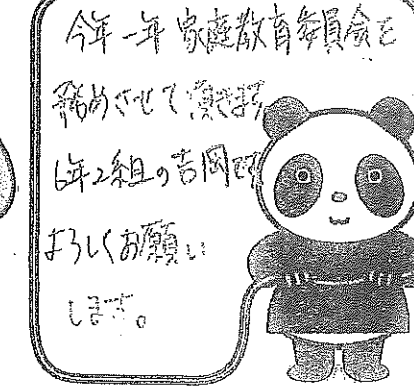 今年一年家庭教育委員会を
務めさせて頂きます
6年2組の吉岡です
よろしくお願い
します。